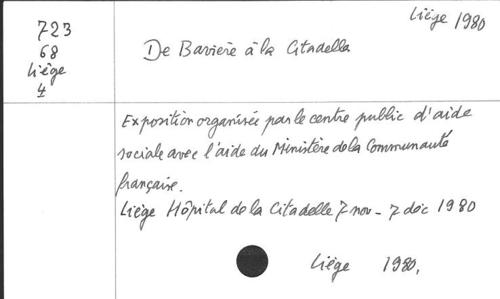 Liège 1980
723
68
Liège
4
De Bavière à la Citadella
Exposition organisée par le centre public d'aide
sociale avec l'aide du Ministère de la Communauté
française.
Liège Hôpital de la Citadelle 7 nov - 7 déc 1980
Liège 1980.